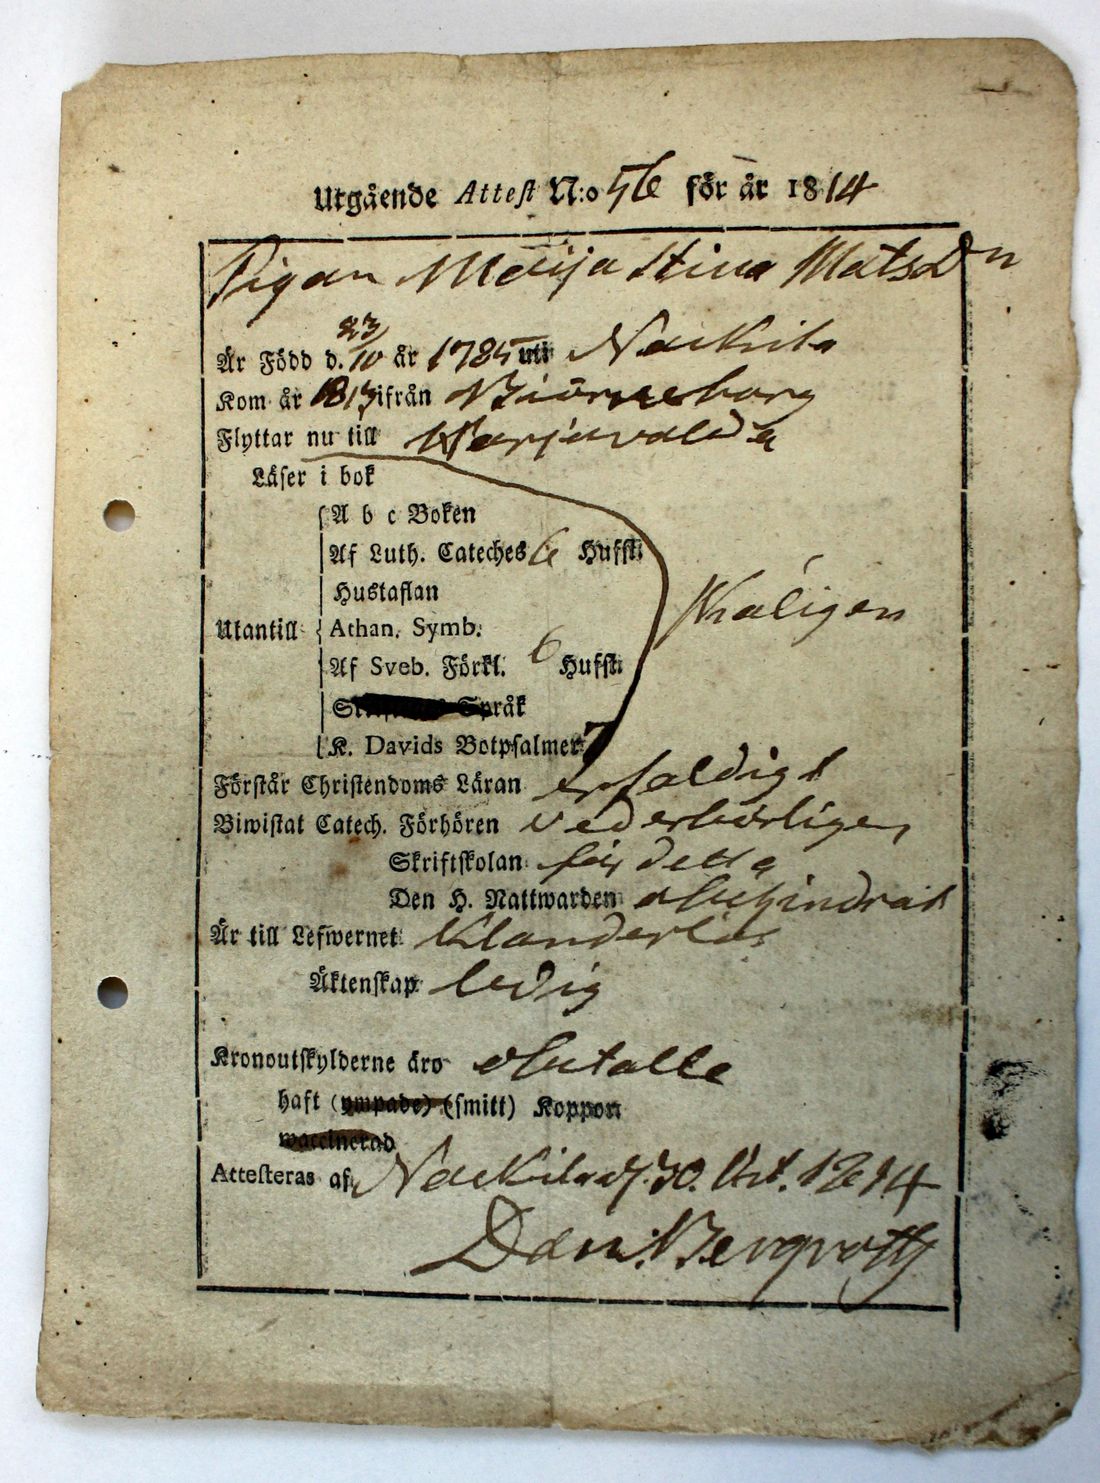 Utgående Attest N:o 56 för år 1814
Pigan Maija Stina Matsdn
23
Är Född d. 10 år 1785 uti Nackila
Kom år 1813 ifrån Biörneborg
Flyttar nu till
Läser i bok
A b c Boken
Af Luth. Cateches 6 Hufst:
Hustaflan
Utantill Athan. Symb.
Af Sveb. Förkl. 6 Hufst:
Språk
K. Davids Botpsalmer 7
Förstår Christendoms Läran enfaldigt
Biwistat Catech. Förhören vederbörligen
Skriftskolan för detta
Den H. Nattwarden obehindrat
Är till Lefwernet Klanderlös
Äktenskap ledig
Kronoutskylderne äro obetalte
haft (ympade) (smitt) Koppor
waccinerad
Attesteras af Nackila d. 30. Oct. 1814
Dan. Bergroth